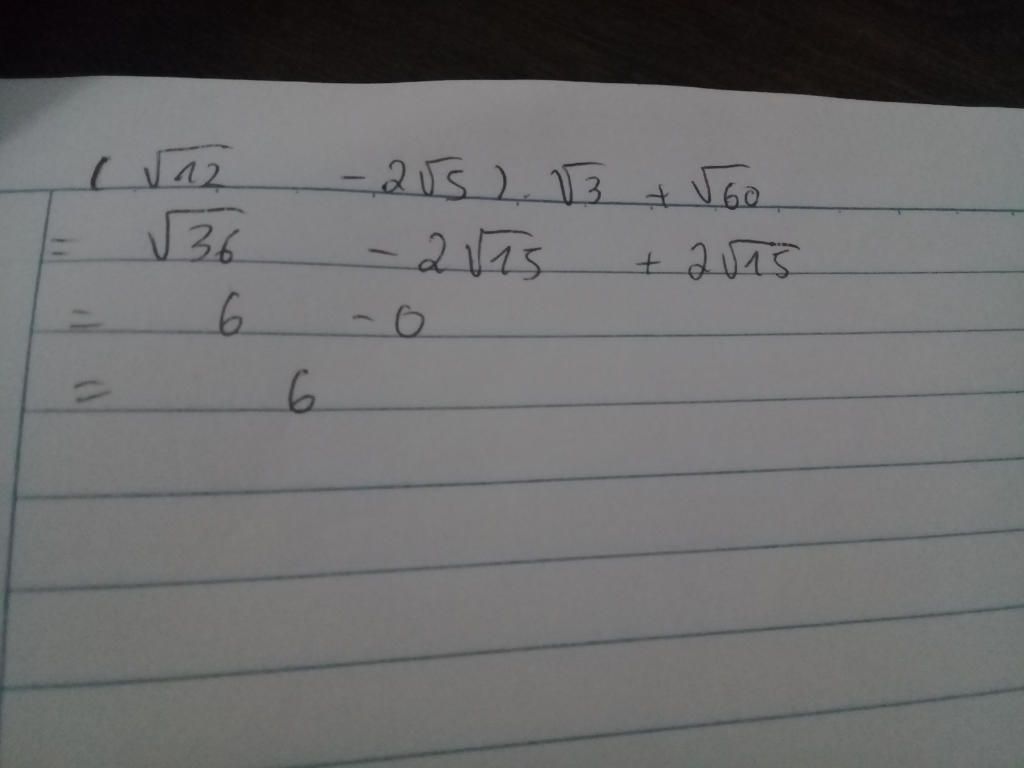 ( √12 - 2√5 ) . √3 + √60
= √36 - 2√15 + 2√15
= 6 - 0
= 6